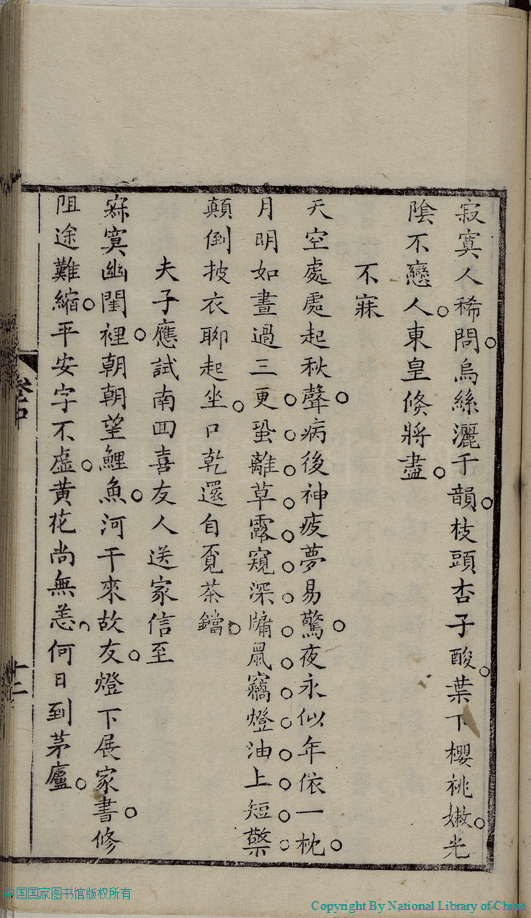 寂寞人稀問烏絲灑千韻枝頭杏子酸葉下櫻桃嫩光
陰不戀人東皇倏將盡
不寐
天空處處起秋聲病後神疲夢易驚夜永似年依一枕
月明如晝過三更蛩離草露窺深牖鼠竊燈油上短檠
顛倒披衣聊起坐口乾還自覔茶鐺
夫子應試南回喜友人送家信至
寂寞幽閨裡朝朝望鯉魚河干來故友燈下展家書修
阻途難縮平安字不虛黃花尚無恙何日到茅廬
卷中
十二
中国国家图书馆版权所有
Copyright By National Library of China